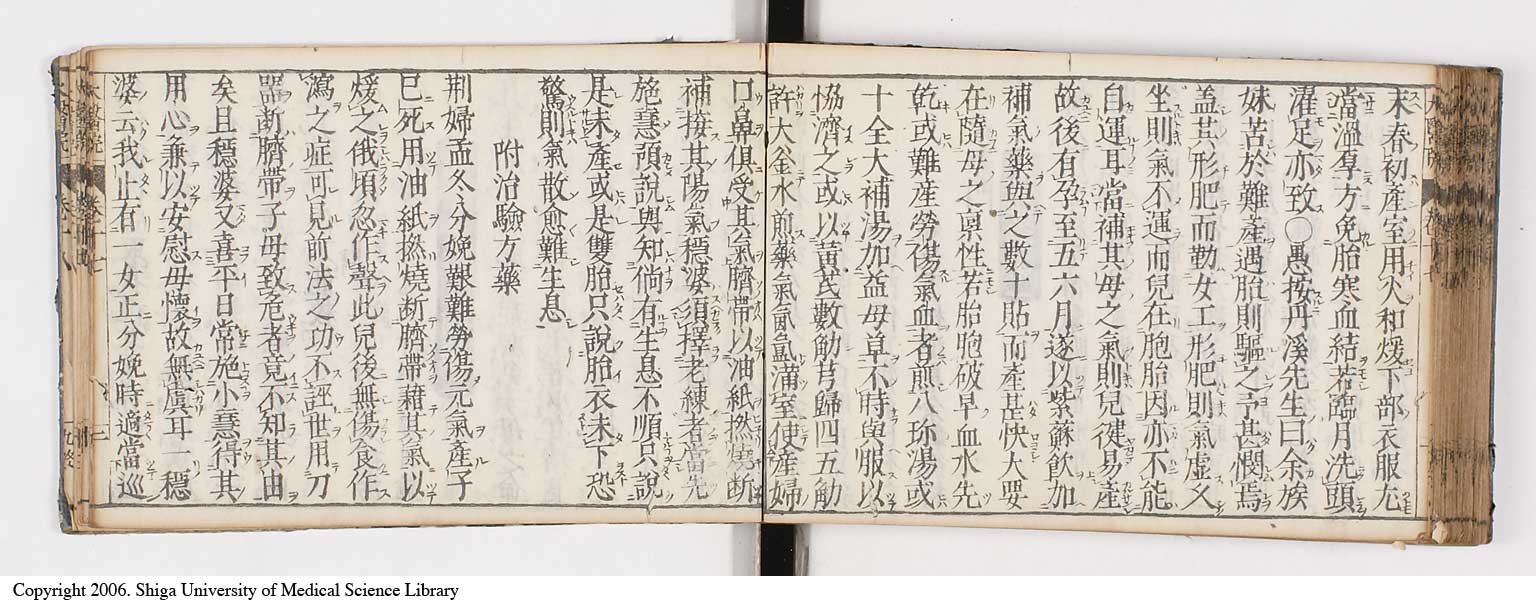 末春初產室用火和煖下部衣服尤
當溫厚方免胎寒血結若臨月洗頭
濯足亦致〇愚按丹溪先生曰余族
妹苦於難產遇胎則驅之予甚憫焉
盖其形肥而勒女工形肥則氣虛久
坐則氣不運而兒在胞胎因亦不能
自運耳當補其母之氣則兒健易產
故後有孕至五六月遂以紫蘇飲加
補氣藥與之數十貼而產甚快大要
在隨母之稟性若胎胞破早血水先
乾或難產勞傷氣血者煎八珎湯或
十全大補湯加益母草不時與服以
恊濟之或以黃芪數觔芎歸四五觔
許大釜水煎藥氣氤氳滿室使產婦
口鼻俱受其氣臍帶以油紙撚燒断
補接其陽氣穩婆須擇老練者當先
施惠預說與知倘有生息不順只說
是未產或是雙胎只說胎衣未下恐
驚則氣散愈難生息
附治驗方藥
荆婦孟冬分娩艱難勞傷元氣產子
已死用油紙撚燒断臍帶藉其氣以
煖之俄頃忽作聲此兒後無傷食作
瀉之症可見前法之功不誣世用刀
器断臍帶子母致危者竟不知其由
矣且穩婆又喜平日常施小惠得其
用心兼以安慰母懷故無虞耳一穩
婆云我止有一女正分娩時適當巡